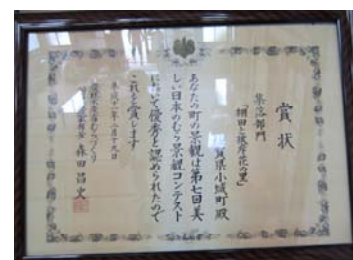 賞状
集落部門
「棚田と彼岸花の里」
佐賀県小城町殿
あなたの町の景観は第七回美
しい日本のむら景観コンテスト
において優秀と認められたので
これを賞します
平成十一年二月十九日
森田昌史